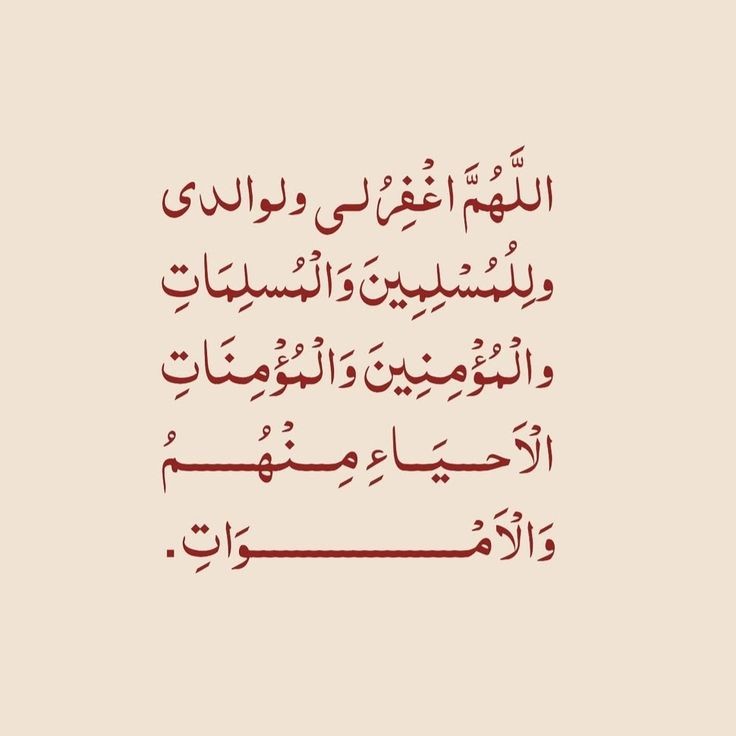 اللَّهُمَّ اغْفِرُ لى ولوالدى
ولِلُمُسْلِمِينَ وَالْمُسلِمَاتِ
والْمُؤْمِنِينَ وَالْمُؤْمِنَاتِ
الْاَحيَاءِ مِنْهُمُ
وَالْاَمْوَاتِ.